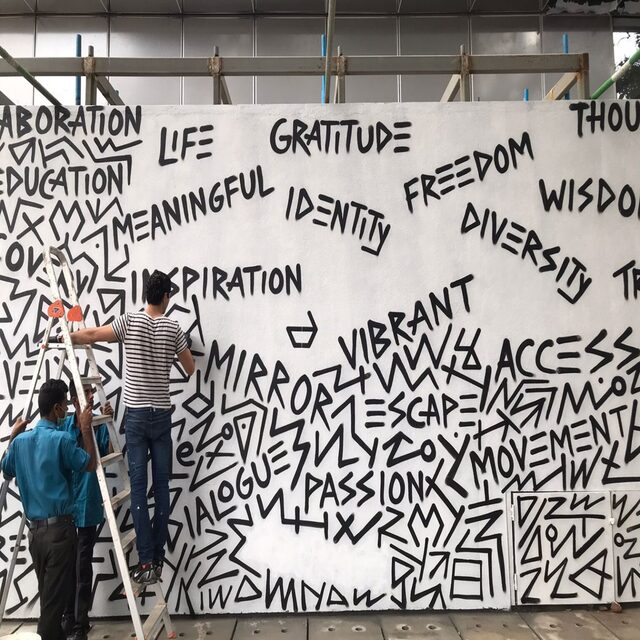 ABORATION
LIFE
GRATITUDE
THOU
EDUCATION
MEANINGFUL
IDENTITY
FREEDOM
WISDO
DIVERSITY
INSPIRATION
TR
VIBRANT
MIRROR
ACCESS
ESCAPE
MOVEMENT
DIALOGUE
PASSION